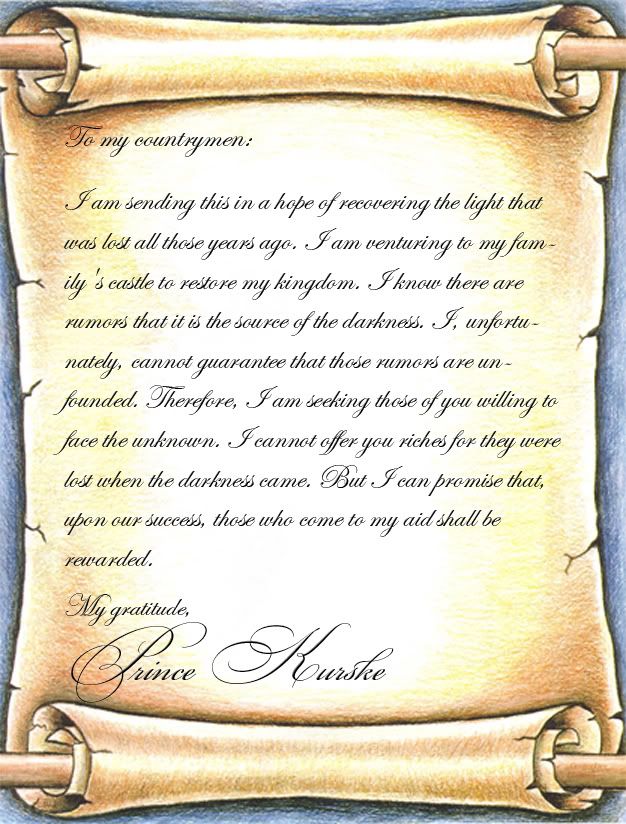 To my countrymen:
I am sending this in a hope of recovering the light that
was lost all those years ago. I am venturing to my fam-
ily 's castle to restore my kingdom. I know there are
rumors that it is the source of the darkness. I, unfortu-
nately, cannot guarantee that those rumors are un-
founded. Therefore, I am seeking those of you willing to
face the unknown. I cannot offer you riches for they were
lost when the darkness came. But I can promise that,
upon our success, those who come to my aid shall be
rewarded.
My gratitude,
Prince Kurske